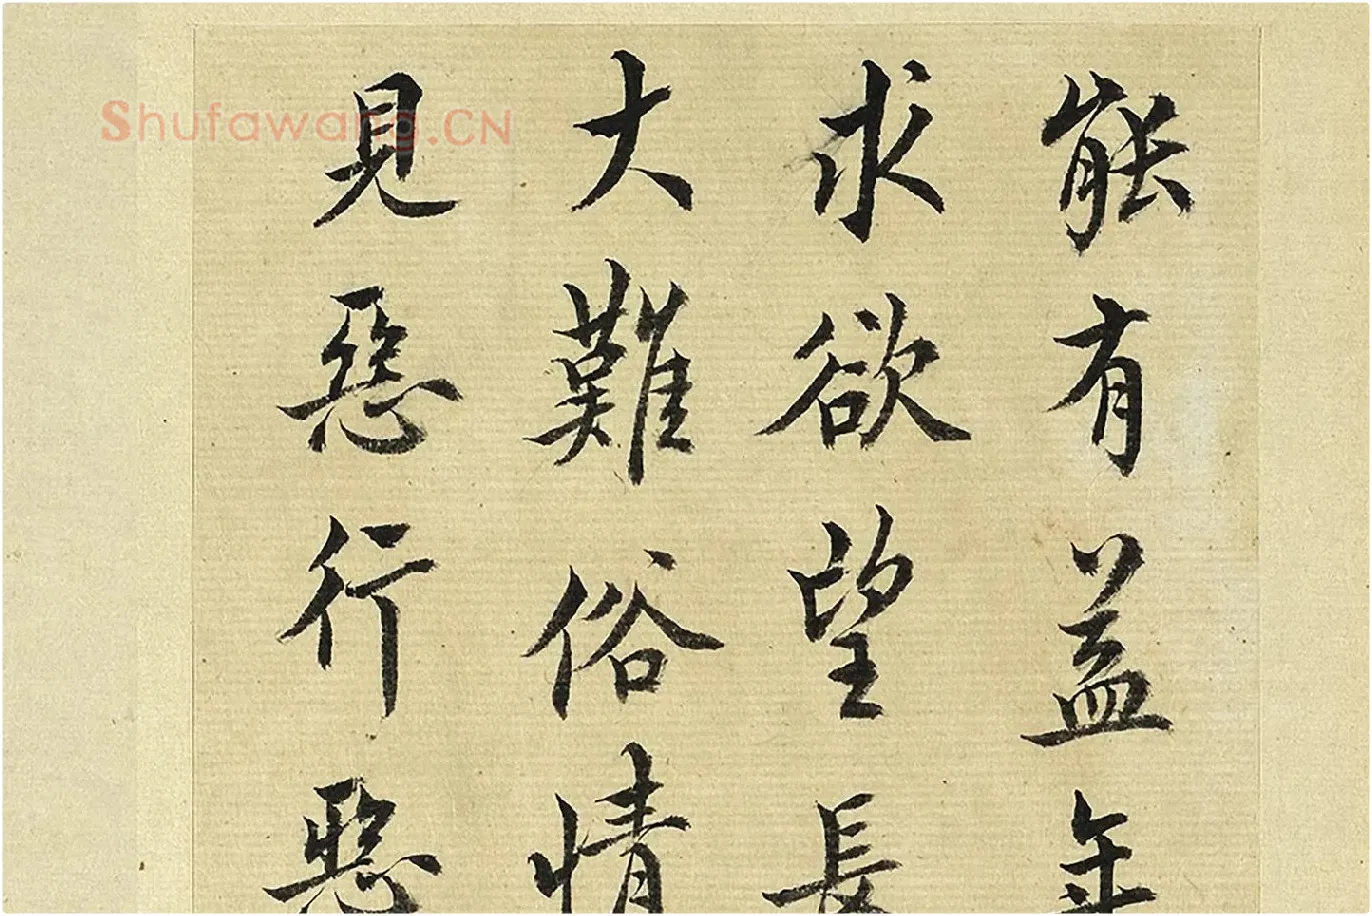 Shufawang.CN
能有益年
求欲望長
大難俗情
見惡行惡